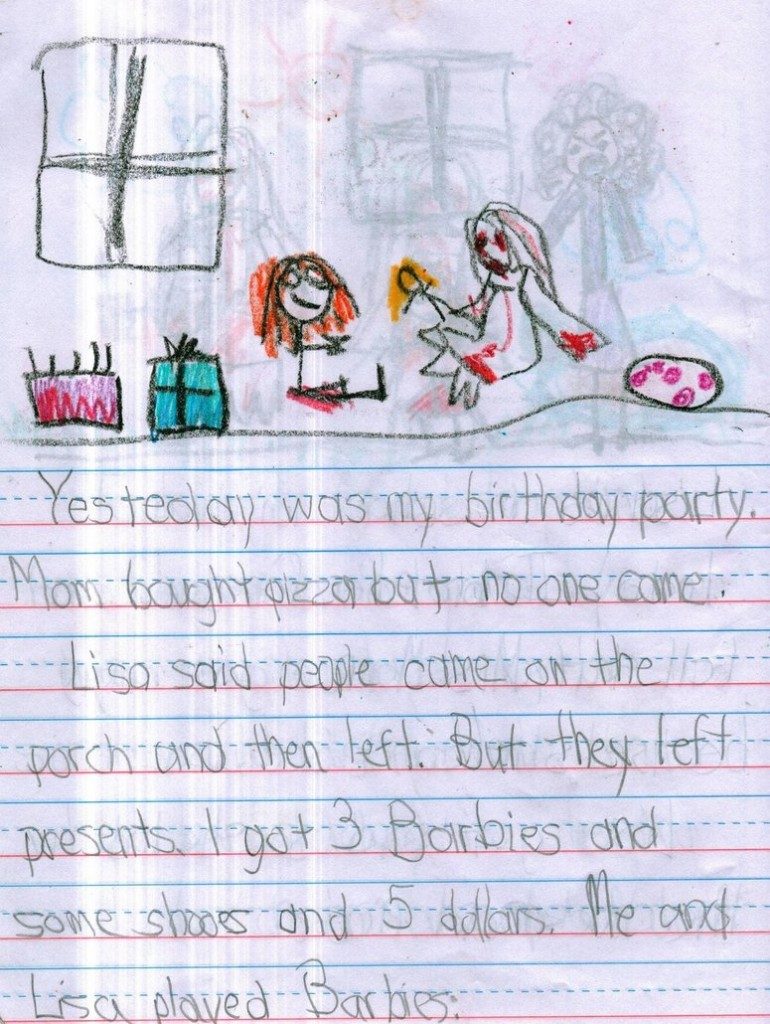 Yesteday was my birthday party.
Mom bought pizza but no one came.
Lisa said people came on the
porch and then left. But they left
presents. I got 3 Barbies and
some shoes and 5 dollars. Me and
Lisa played Barbies.